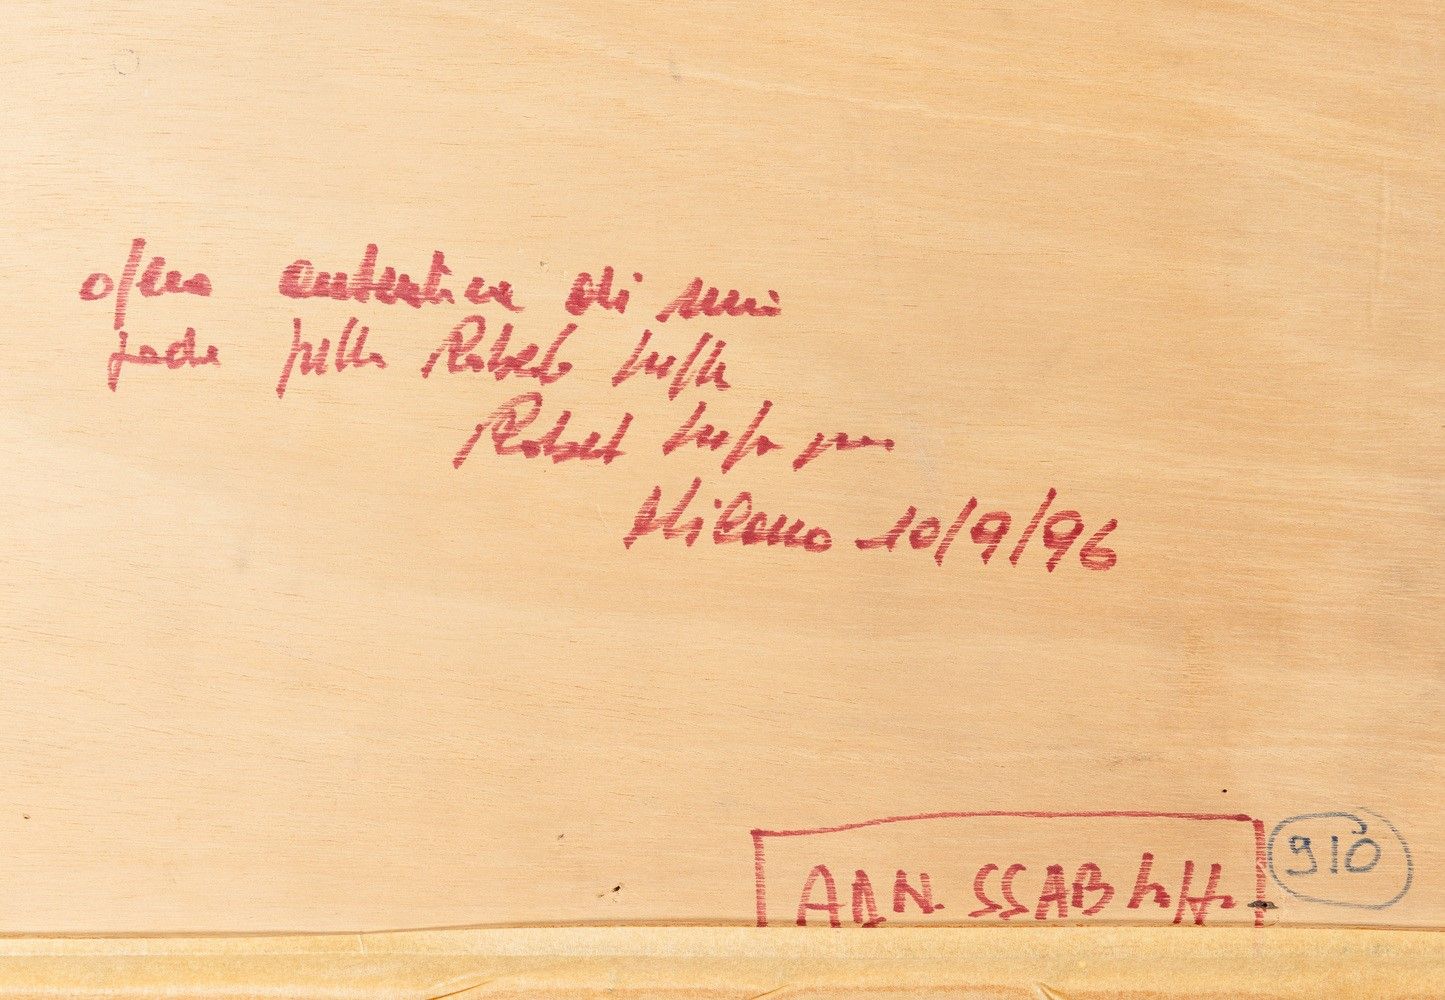 opera autentica di mio
padre pittore Roberto Crippa
Roberto Crippa jun
Milano 10/9/96
910